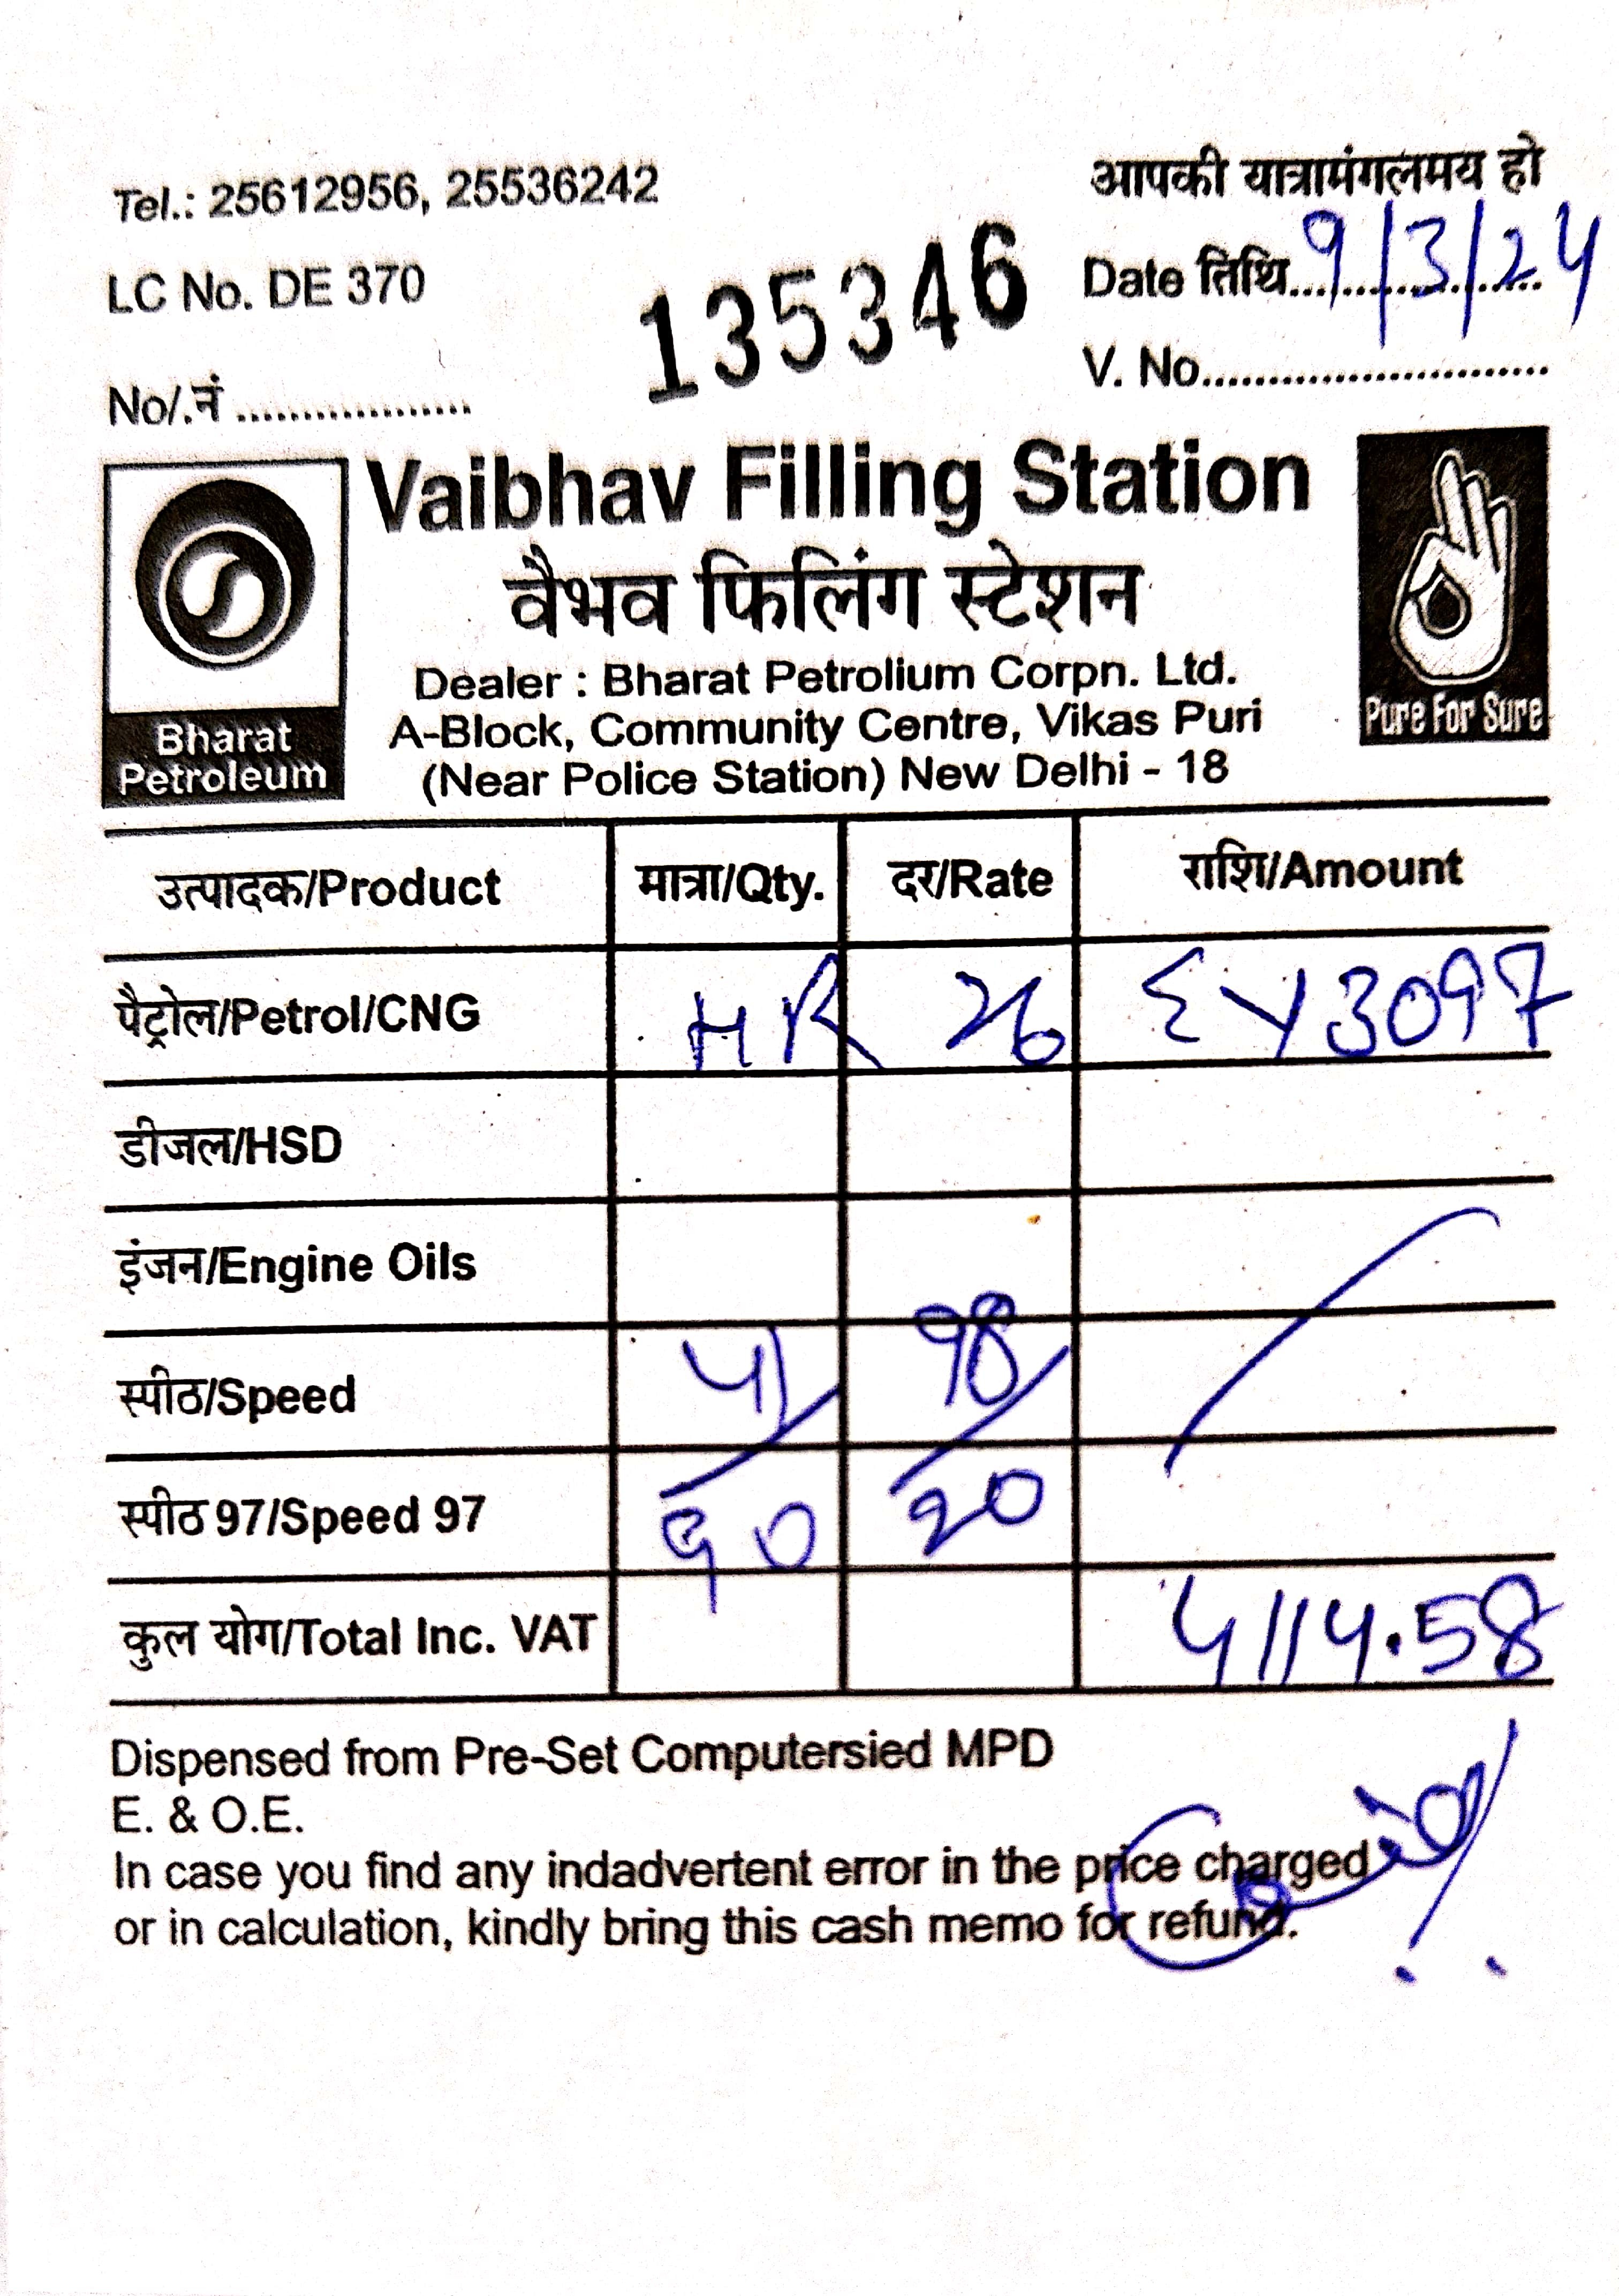 Tel.: 25612956, 25536242
आपकी यात्रामंगलमय हो
LC No. DE 370
135346
Date तिथि..................9/3/24
No/.नं ..................
V. No..........................
Vaibhav Filling Station
वैभव फिलिंग स्टेशन
Dealer : Bharat Petrolium Corpn. Ltd.
A-Block, Community Centre, Vikas Puri
(Near Police Station) New Delhi - 18
Bharat
Petroleum
Pure For Sure
उत्पादक/Product मात्रा/Qty. दर/Rate राशि/Amount
पैट्रोल/Petrol/CNG HR 26 EY3097
डीजल/HSD
इंजन/Engine Oils
स्पीठ/Speed 41 98
स्पीठ 97/Speed 97 90 20
कुल योग/Total Inc. VAT 4114.58
Dispensed from Pre-Set Computersied MPD
E. & O.E.
In case you find any indadvertent error in the price charged
or in calculation, kindly bring this cash memo for refund.